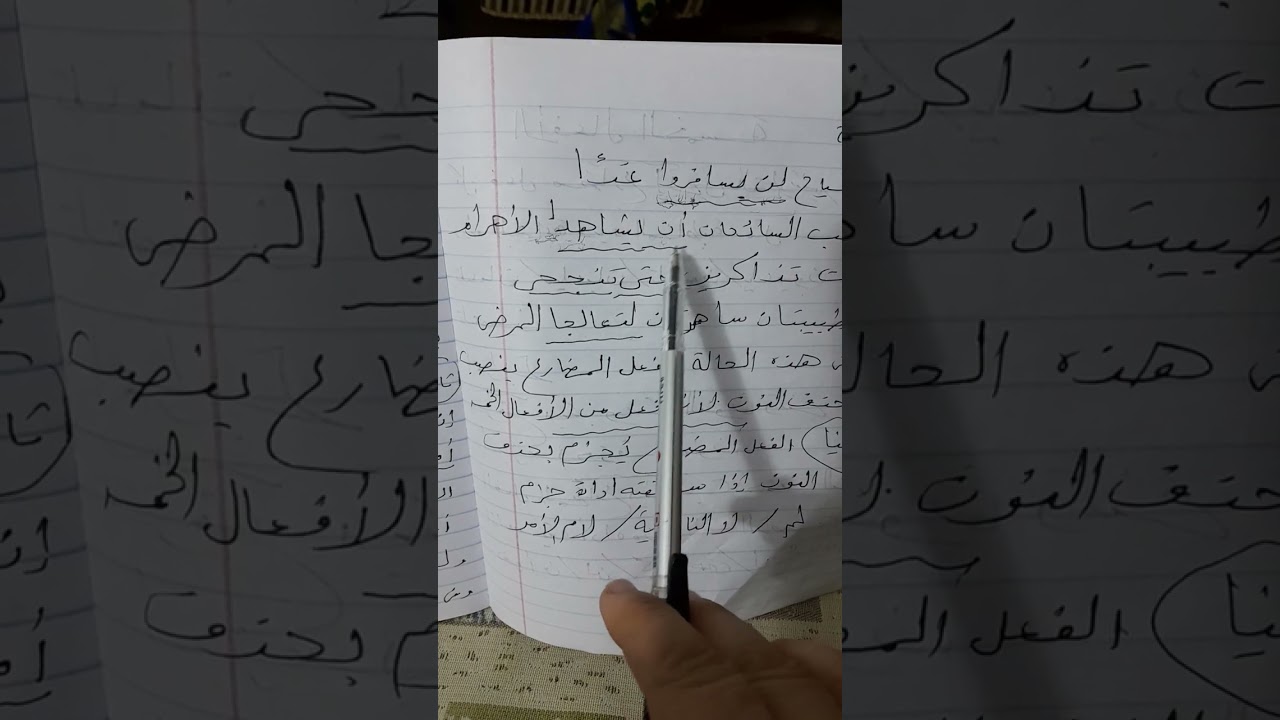 لن يسافروا غدًا
السائحان أن يشاهدا الأهرام
تذاكرين حتى تنجحى
طبيبتان ساهرتان لتعالجا المرضى
هذه الحالة الفعل المضارع ينصب
بحذف النون لأنه فعل من الأفعال الخمسة
الفعل المضارع يُجزم بحذف
النون إذا سبقته اداة جزم
لم / لا الناهية / لام الأمر